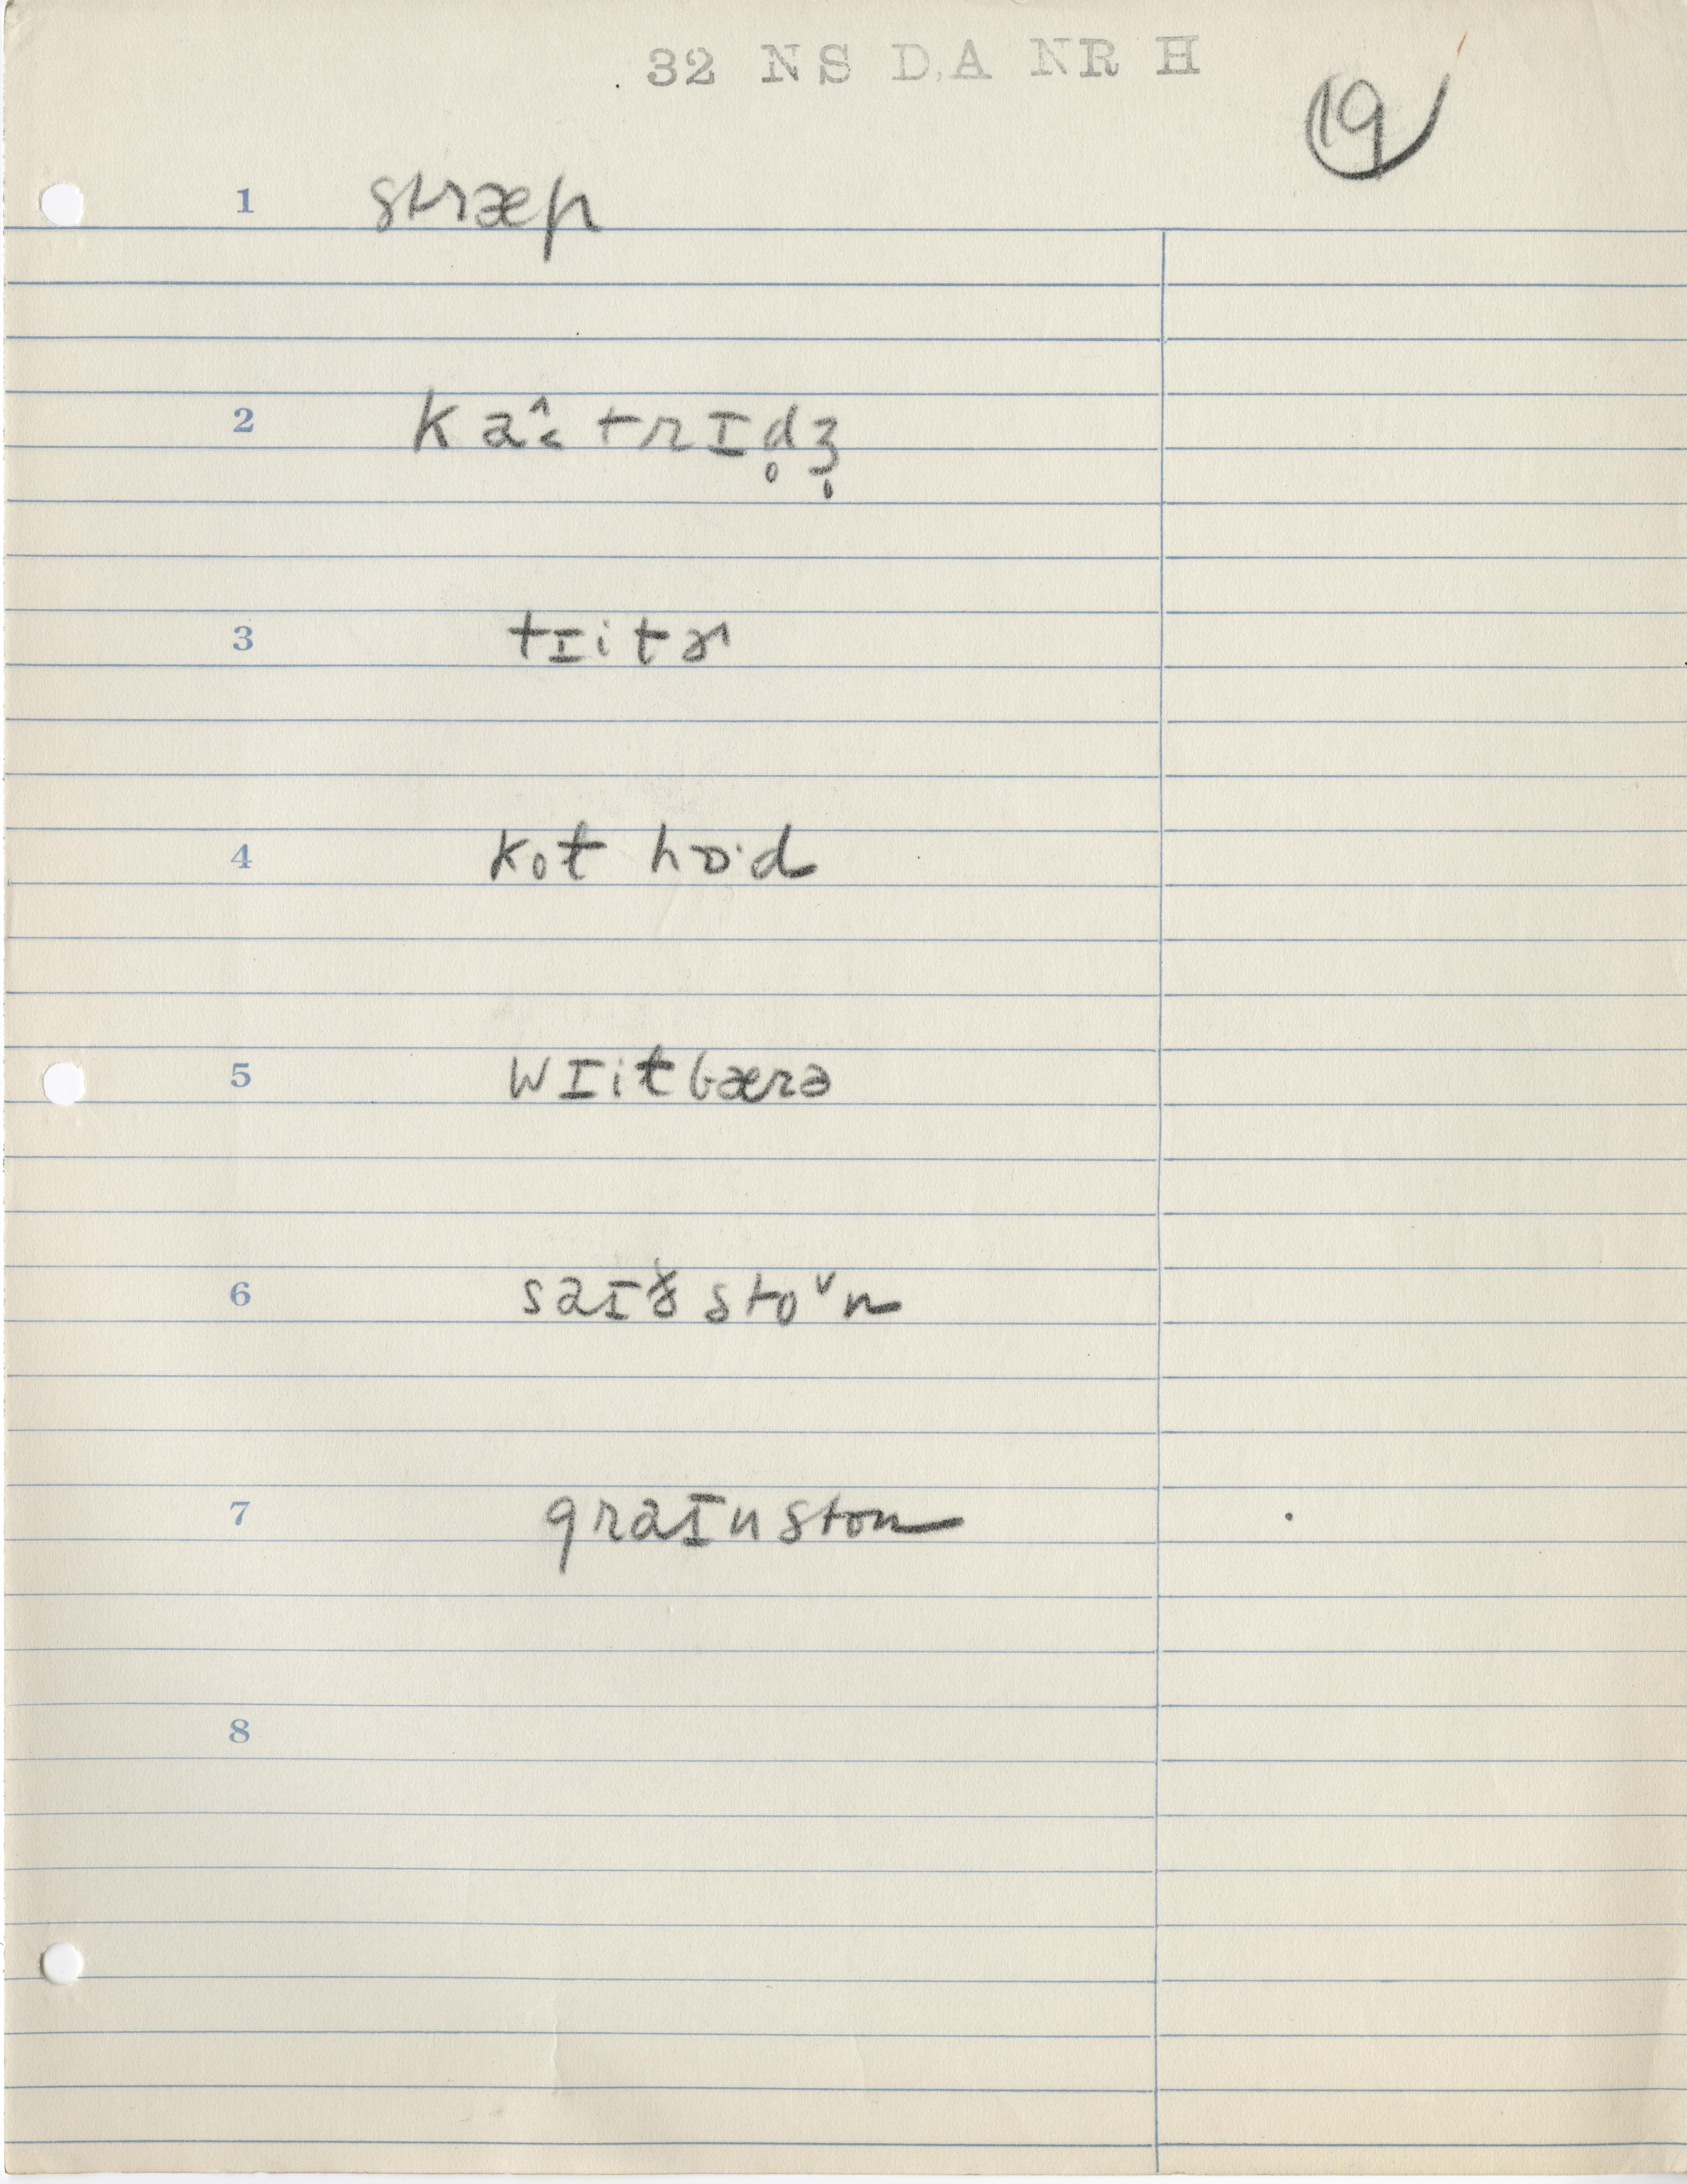 32 NS D.A NR H
19
1 stræp
2 ka^˂trɪd̥ʒ̥
3 tɪitɚ
4 kot hɒ·d
5 wɪitbærə
6 saɪð stoˇn
7 graɪnston
8